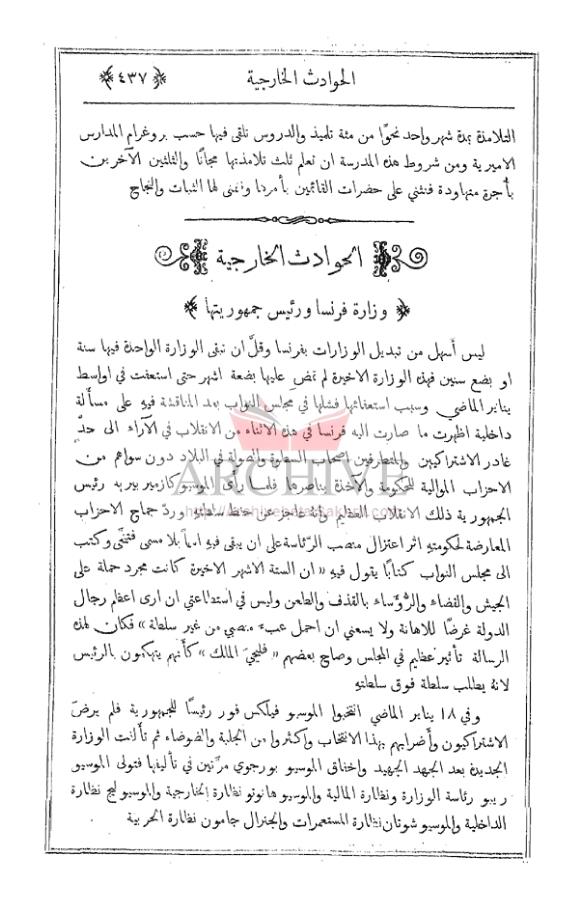 الحوادث الخارجية
﴿٤٣٧﴾
التلامذة بمدة شهر واحد نحوًا من مئة تلميذ والدروس تلقى فيها حسب بروغرام المدارس
الاميرية ومن شروط هذه المدرسة ان تعلم ثلث تلامذتها مجانًا والثلثين الآخرين
بأجرة متهاودة فنثني على حضرات القائمين بأمرها ونتمنى لها الثبات والنجاح
الحوادث الخارجية
﴿ وزارة فرنسا ورئيس جمهوريتها ﴾
ليس أسهل من تبديل الوزارات بفرنسا وقلَّ ان تبقى الوزارة الواحدة فيها سنة
او بضع سنين فهذه الوزارة الاخيرة لم تمضِ عليها بضعة اشهر حتى استعفت في اواسط
يناير الماضي وسبب استعفائها فشلها في مجلس النواب بعد المناقشة فيه على مسألة
داخلية اظهرت ما صارت اليه فرنسا في هذه الاثناء من الانقلاب في الآراء الى حدّ
غادر الاشتراكيين والمتطرفين اصحاب السطوة والصولة في البلاد دون سواهم من
ARCHIVE
الاحزاب الموالية للحكومة والآخذة بناصرها فلما رأى الموسيو كازمير بيريه رئيس
الجمهورية ذلك الانقلاب العظيم وانه عاجز عن حفظ سلطته وردّ جماح الاحزاب
المعارضة لحكومته اثر اعتزال منصب الرئاسة على ان يبقى فيه اسمًا بلا مسمى فتنحّى وكتب
الى مجلس النواب كتابًا يقول فيه « ان الستة الاشهر الاخيرة كانت مجرد حملة على
الجيش والقضاء والرُّؤساء بالقذف والطعن وليس في استطاعتي ان ارى اعظم رجال
الدولة غرضًا للاهانة ولا يسعني ان احمل عبء منصبي من غير سلطة » فكان لهذه
الرسالة تأثير عظيم في المجلس وصاح بعضهم « فليحيَ الملك » كأنهم يتهكمون بالرئيس
لانهُ يطلب سلطة فوق سلطته
وفي ١٨ يناير الماضي انتخبوا الموسيو فيلكس فور رئيسًا للجمهورية فلم يرضَ
الاشتراكيون وأضرابهم بهذا الانتخاب وأكثروا من الجلبة والضوضاء ثم تألفت الوزارة
الجديدة بعد الجهد الجهيد واخفاق الموسيو بورجوي مرّتين في تأليفها فتولى الموسيو
ريبو رئاسة الوزارة ونظارة المالية والموسيو هانوتو نظارة الخارجية والموسيو ليج نظارة
الداخلية والموسيو شوتان نظارة المستعمرات والجنرال جامون نظارة الحربية